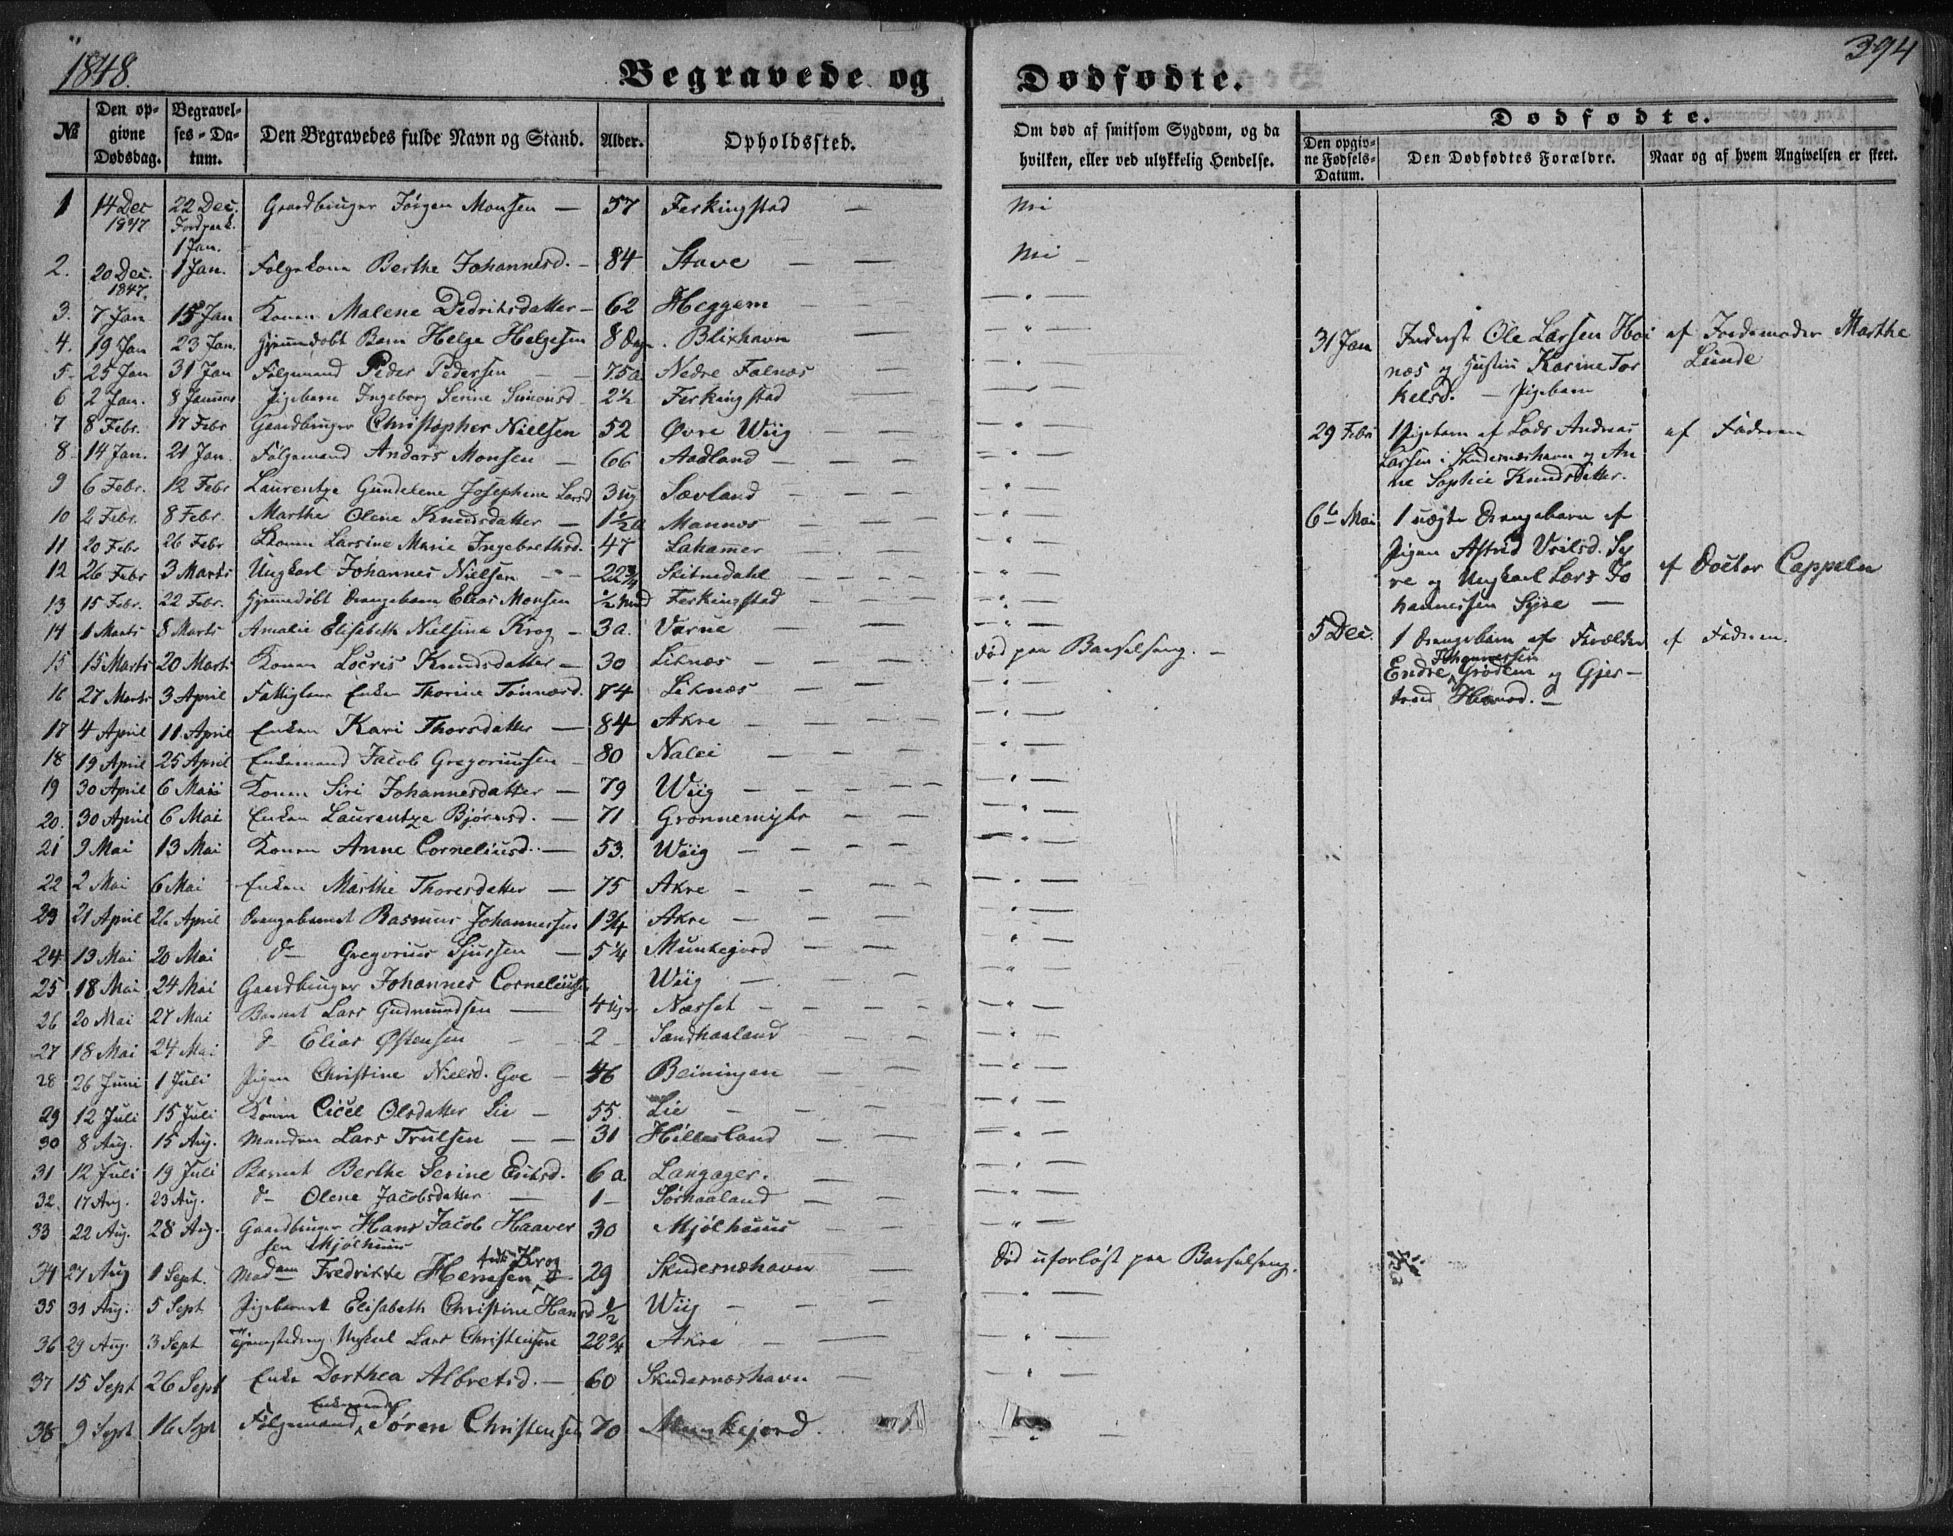 1848.
394
Begravede og
Dødfødte.
№
Den opgivne Dødsdag.
Begravelses-Datum.
Den Begravedes fulde Navn og Stand.
Alder.
Opholdssted.
Om død af smitsom Sygdom, og da hvilken, eller ved ulykkelig Hendelse.
Dødfødte.
Den opgivne Fødsels-Datum.
Den Dødfødtes Forældre.
Naar og af hvem Angivelsen er skeet.
1 14 Dec 1847 22 Dec. Jordpaak. 1 Jan. Gaardbruger Jörgen Monsen — 57 Ferkingstad — Nei
2. 20 Dec. 1847. 1 Jan. Følgekone Berthe Johannesd. — 84 Stave — — Nei —
3. 7 Jan 15 Jan Konen Malene Didriksdatter — 62 Heggem — — " —
4. 19 Jan 23 Jan. Hjemmedøbt Barn Helge Helgesen 8 Dag. Blixhavn — — " —
5. 25 Jan 31 Jan Følgemand Peder Pedersen — 75 a Nedre Falnæs — — " —
6 2 Jan. 8 Januar Pigebarn Ingeborg Serine Simonsd 2½ Ferkingstad — — " —
7 8 Febr. 17 Febr Gaardbruger Christopher Nielsen 52 Øvre Wiig — — " —
8. 14 Jan. 21 Jan. Følgemand Anders Monsen — 66 Aadland — — " —
9 6 Febr. 12 Febr Laurentze Gundelene Josephine Larsd 3 ug Sævland — — " —
10 2 Febr. 8 Febr. Marthe Olene Knudsdatter — 1½ a Mannes — — " —
11 20 Febr 26 Febr Konen Larsine Marie Ingebrethsd. 47 Lahamer — — " —
12 26 Febr 3 Marts Ungkarl Johannes Nielsen — 22¾ Skitnedahl — — " —
13 15 Febr. 22 Febr. Hjemmedøbt Drengebarn Elias Monsen ½ Mnd Ferkingstad — — " —
14 1 Marts 8 Marts Amalie Elisabeth Nielsine Krog — 3 a. Varne — — " —
15 15 Marts 20 Marts Konen Locris Knudsdatter — 30 Liknæs — død paa Barselseng. —
16 27 Marts 3 April Fattiglem Enken Thorine Tønnesd. 74 Liknæs — — " —
17 4 April 11 April Enken Kari Thorsdatter — 84 Akre — — " —
18 19 April 25 April Enkemand Jacob Gregoriussen — 80 Nalei — — " —
19 30 April 6 Maii Konen Siri Johannesdatter — 79 Wiig — — " —
20. 30 April 6 Mai Enken Laurentze Bjørnsd. — 71 Grønnemyhr — — " —
21 9 Mai 13 Mai Konen Anne Corneliusd. — 53. Wiig — — " —
22 2 Mai 6 Mai Enken Marthe Thoresdatter — 75 Akre — — " —
23 21 April 26 April Drengebarnet Rasmus Johannessen 1¾ Akre — — " —
24 13 Mai 20 Mai d— Gregorius Sjursen — 5¼ Munkejord — — " —
25 18 Mai 24 Mai Gaardbruger Johannes Corneliusen Wiig — — " —
26 20 Mai 27 Mai Barnet Lars Gudmundsen — 4 Uger Næsset — — " —
27 18 Mai 24 Mai d— Elias Østensen — 2 — Sandhaaland — — " —
28 26 Juni 1 Juli Pigen Christine Nielsd. Goe — 46 Beiningen — — " —
29 12 Juli 15 Juli Konen Cicel Olsdatter Lie — 55. Lie — — " —
30 8 Aug. 15 Aug. Manden Lars Trulsen — 31 Hillesland — — " —
31 12 Juli 19 Juli Barnet Berthe Serine Eriksd. 6 a. Langager. — " —
32. 17 Aug. 23 Aug. d— Olene Jacobsdatter — 1— Sørhaaland — — " —
33 22 Aug. 28 Aug. Gaardbruger Hans Jacob Haaversen Mjølhuus 30 Mjølhuus — — " —
34 27 Aug 1 Sept. Madam Fredrikke Hemsen født Krog 29 Skudesnæshavn — Død uforløst paa Barselseng.
35 31 Aug. 5 Sept Pigebarnet Elisabeth Christine Hansd ½ Wiig — — " —
36 29 Aug. 3 Sept Ungkarl Lars Christensen 22¾ Akre — — " —
37 15 Sept 26 Sept Enke Dorthea Albretsd. — 60 Skudesnæshavn — — " —
38 9 Sept 16 Sept Følgemand, Enkemand Søren Christensen 70 Munkejord.
31 Jan Inderst Ole Larsen Høinæs og Hustru Karine Torkelsd. — Pigebarn af Jordemoder Marthe Lunde
29 Febr 1 Pigebarn af Lods Andreas Larsen i Skudesnæshavn og Anne Sophie Knudsdatter. af Faderen
6te Mai 1 uægte Drengebarn af Pigen Astrid og Ungkarl Lars Johannessen Syre — af Doctor Cappelen
5 Dec. 1 Drengebarn af Forældre Endre Johannessen Grødem og Gjertrud — af Faderen.